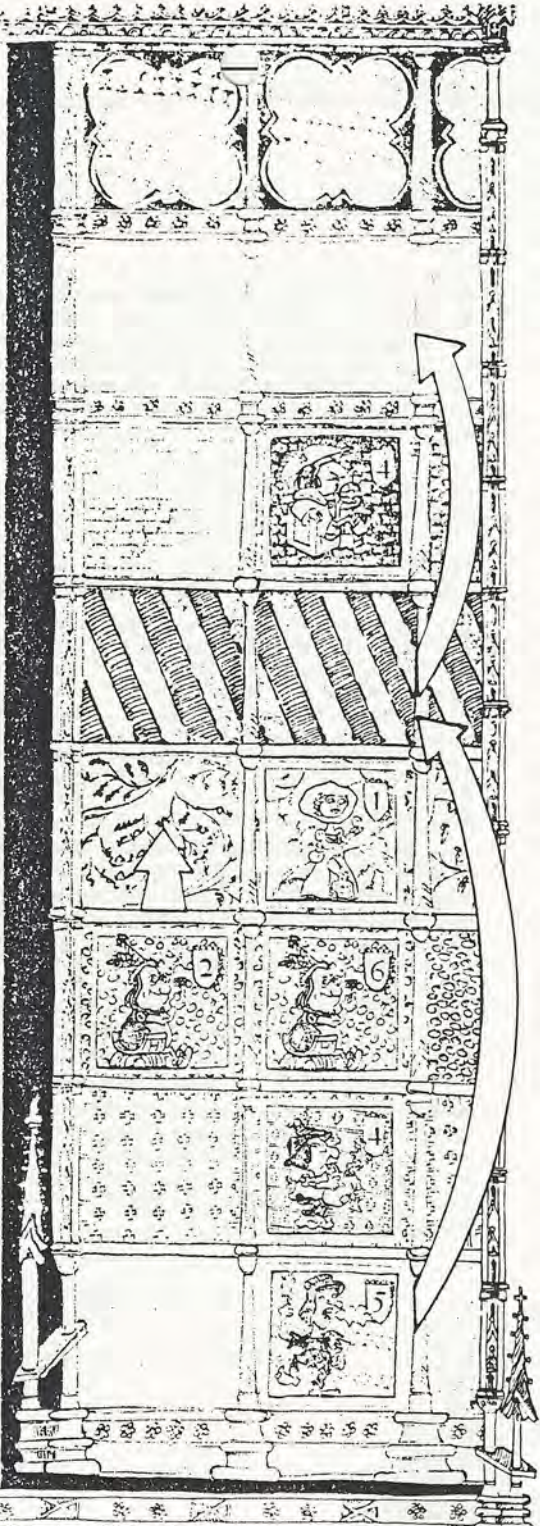 4
1
2 6
4
5